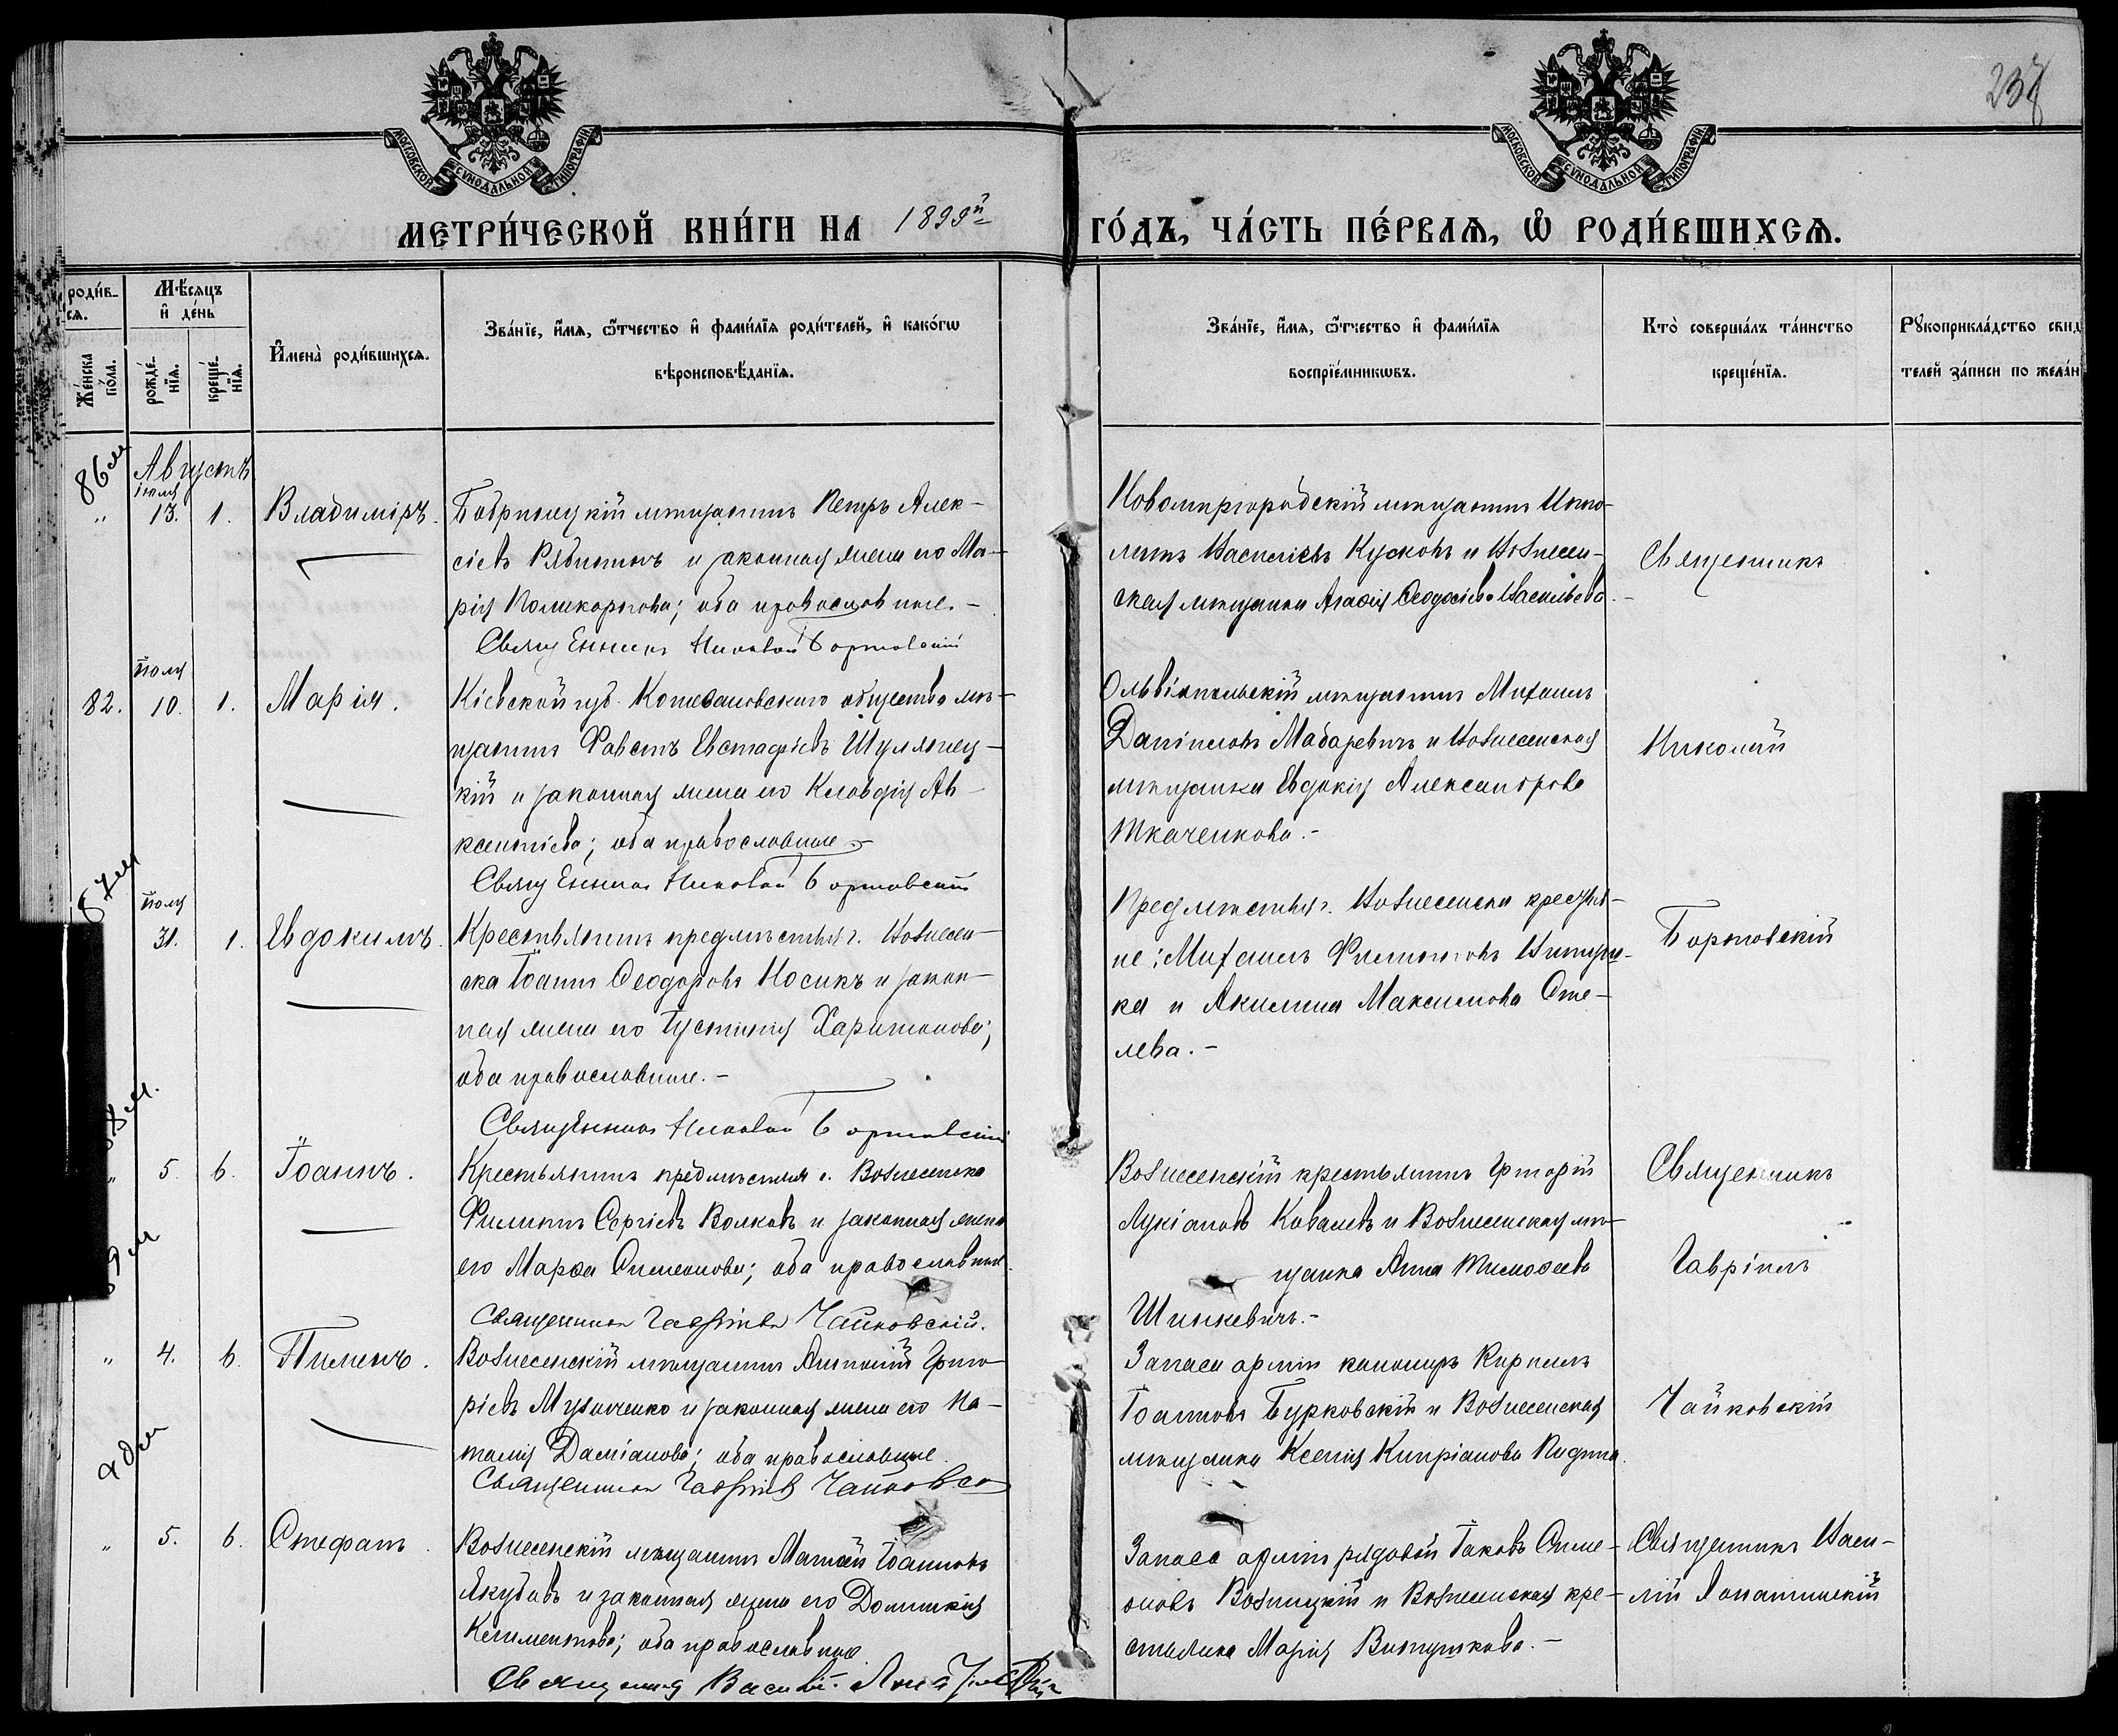 МОСКОВСКОЙ СѴНОДАЛЬНОЙ ТИПОГРАФІИ
МОСКОВСКОЙ СѴНОДАЛЬНОЙ ТИПОГРАФІИ
237
МЕТРИ́ЧЕСКОЙ КНИ́ГИ НА 1899й
ГО́ДЪ, ЧА́СТЬ ПЕ́РВАѦ, Ѡ҆ РОДИ́ВШИХСѦ.
роди́в-
сѧ.
Же́нска по́ла.
Мѣ́сѧцъ и҆ де́нь
рожде́-нїѧ.
креще́-нїѧ.
И҆мена̀ роди́вшихсѧ.
Зва́нїе, и҆́мѧ, ѻ҆́тчество и҆ фами́лїѧ роди́телей, и҆ како́гѡ
вѣроисповѣ́данїѧ.
Зва́нїе, и҆́мѧ, ѻ҆́тчество и҆ фами́лїѧ
воспрїе́мникѡвъ.
Кто̀ соверша́лъ та́инство
креще́нїѧ.
Рꙋкоприкла́дство свид
телей за́писи по жела́н
86 м
Августъ
іюля
" 13. 1. Владиміръ.
Бобринецкій мѣщанинъ Петръ Алек-
сіевъ Рябининъ и законная жена его Ма-
рія Поликарпова; оба православные.-
Священникъ Николай Бортовскій
Новомиргородскій мѣщанинъ Иппо-
литъ Васильевъ Кусковъ и Вознесен-
ская мѣщанка Агафія Ѳеодосіева Васильева.
Священникъ
іюля
82. 10. 1. Марія.
Кіевской губ. Котевановскаго общества мѣ-
щанинъ Фавстъ Евстафіевъ Шулляец-
кій и законная жена его Клавдія Ав-
ксентіева; оба православные.-
Священникъ Николай Бортовскій
Ольвіопольскій мѣщанинъ Михаилъ
Даніиловъ Мадаревичъ и Вознесенская
мѣщанка Евдокія Александрова
Ткаченкова.-
Николай
87 м
іюля
31. 1. Евдокимъ.
Крестьянинъ предмѣстья г. Вознесен-
ска Іоаннъ Ѳеодоровъ Носикъ и закон-
ная жена его Іустинія Харитонова;
оба православные.-
Священникъ Николай Бортовскій
Предмѣстья г. Вознесенска крестья-
не: Михаилъ Филипповъ
и Акилина Максимова Оте-
лева.-
Бортовскій
88 м.
" 5. 6. Іоаннъ.
Крестьянинъ предмѣстья г. Вознесенска
Филиппъ Сергіевъ Волковъ и законная жена
его Марѳа Симеонова; оба православные.
Священникъ Гавріилъ Чайковскій.
Вознесенскій крестьянинъ Григорій
Лукіановъ Ковалевъ и Вознесенская мѣ-
щанка Анна Тимоѳеева
Шинкевичъ.-
Священникъ
Гавріилъ
89 м
" 4. 6. Пименъ.
Вознесенскій мѣщанинъ Антоній Григо-
ріевъ Музыченко и законная жена его На-
талія Даміанова; оба православные.
Священникъ Гавріилъ Чайковскій
Запаса арміи канониръ Кириллъ
Іоанновъ Бурковскій и Вознесенская
мѣщанка Ксенія Кипріанова Кудина.
Чайковскій
90 м
" 5. 6. Стефанъ.
Вознесенскій мѣщанинъ Матѳей Іоанновъ
Якубовъ и законная жена его Домникія
Климентова; оба православные.
Священникъ Василій
Запаса арміи рядовой Іаковъ Симе-
оновъ Возницкій и Вознесенская кре-
стьянка Марія Витушкова.-
Священникъ Васи-
лій Лопатинскій